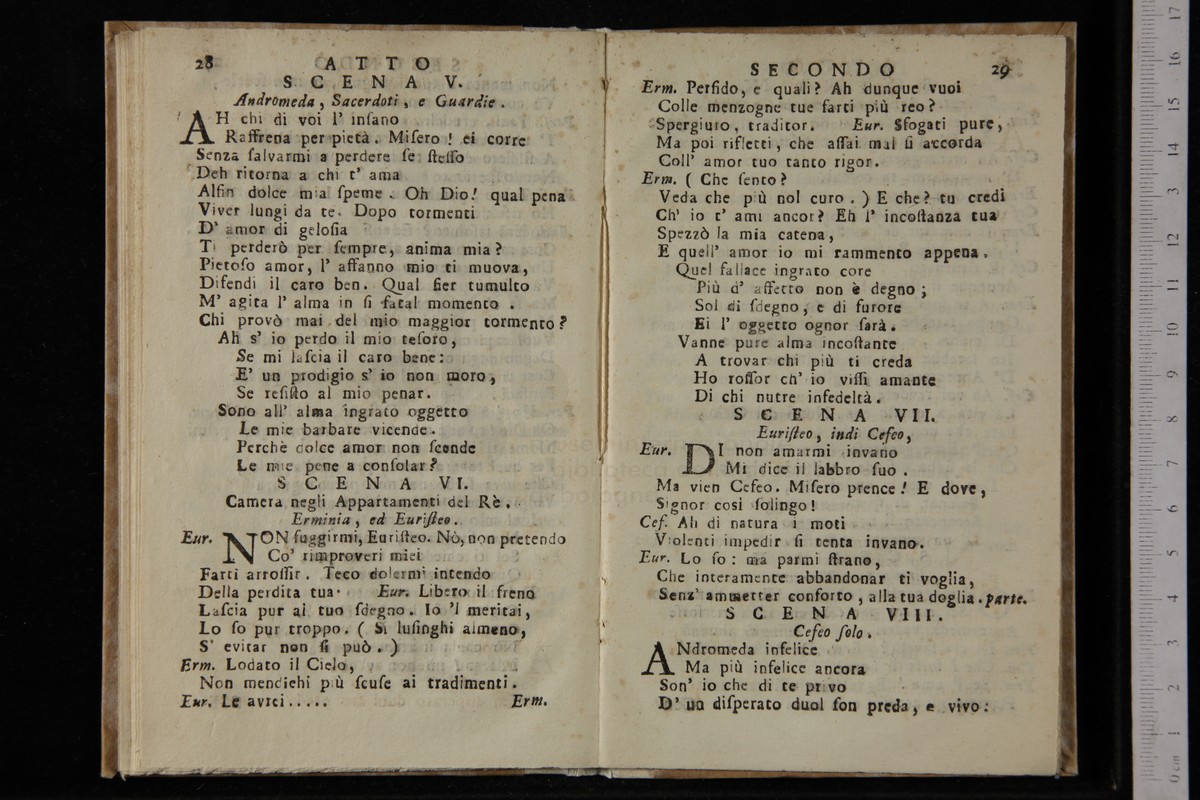 28 ATTO
SCENA V.
Andromeda, Sacerdoti, e Guardie.
AH chi di voi l' inſano
Raffrena per pietà. Miſero! ei corre
Senza ſalvarmi a perdere ſe ſteſſo
Deh ritorna a chi t' ama
Alfin dolce mia ſpeme. Oh Dio! qual pena
Viver lungi da te. Dopo tormenti
D' amor di geloſia
Ti perderò per ſempre, anima mia?
Pietoſo amor, l' affanno mio ti muova,
Difendi il caro ben. Qual fier tumulto
M' agita l' alma in ſi fatal momento.
Chi provò mai del mio maggior tormento?
Ah s' io perdo il mio teſoro,
Se mi laſcia il caro bene:
E' un prodigio s' io non moro,
Se reſiſto al mio penar.
Sono all' alma ingrato oggetto
Le mie barbare vicende.
Perchè dolce amor non ſcende
Le mie pene a conſolar?
SCENA VI.
Camera negli Appartamenti del Rè.
Erminia, ed Euriſteo.
Eur. NON fuggirmi, Euriſteo. Nò, non pretendo
Co' rimproveri miei
Farti arroſſir. Teco dolermi intendo
Della perdita tua. Eur. Libero il freno
Laſcia pur al tuo ſdegno. Io 'l meritai,
Lo ſo pur troppo. (Si luſinghi almeno,
S' evitar non ſi può.)
Erm. Lodato il Cielo,
Non mendichi più ſcuſe ai tradimenti.
Eur. Le avrei.....
Erm.
SECONDO 29
Erm. Perfido, e quali? Ah dunque vuoi
Colle menzogne tue farti più reo?
Spergiuro, traditor. Eur. Sfogati pure,
Ma poi rifletti, che aſſai mal ſi accorda
Coll' amor tuo tanto rigor.
Erm. (Che ſento?
Veda che più nol curo.) E che? tu credi
Ch' io t' ami ancor? Eh l' incoſtanza tua
Spezzò la mia catena,
E quell' amor io mi rammento appena.
Quel fallace ingrato core
Più d' affetto non è degno;
Sol di ſdegno, e di furore
Ei l' oggetto ognor ſarà.
Vanne pure alma incoſtante
A trovar chi più ti creda
Ho roſſor ch' io viſſi amante
Di chi nutre infedeltà.
SCENA VII.
Euriſteo, indi Cefeo,
Eur. DI non amarmi invano
Mi dice il labbro ſuo.
Ma vien Cefeo. Miſero prence! E dove,
Signor cosi ſolingo!
Cef. Ah di natura i moti
Violenti impedir ſi tenta invano.
Eur. Lo ſo: ma parmi ſtrano,
Che interamente abbandonar ti voglia,
Senz' ammetter conforto, alla tua doglia. parte.
SCENA VIII.
Cefeo ſolo.
ANdromeda infelice
Ma più infelice ancora
Son' io che di te privo
D' un diſperato duol ſon preda, e vivo: